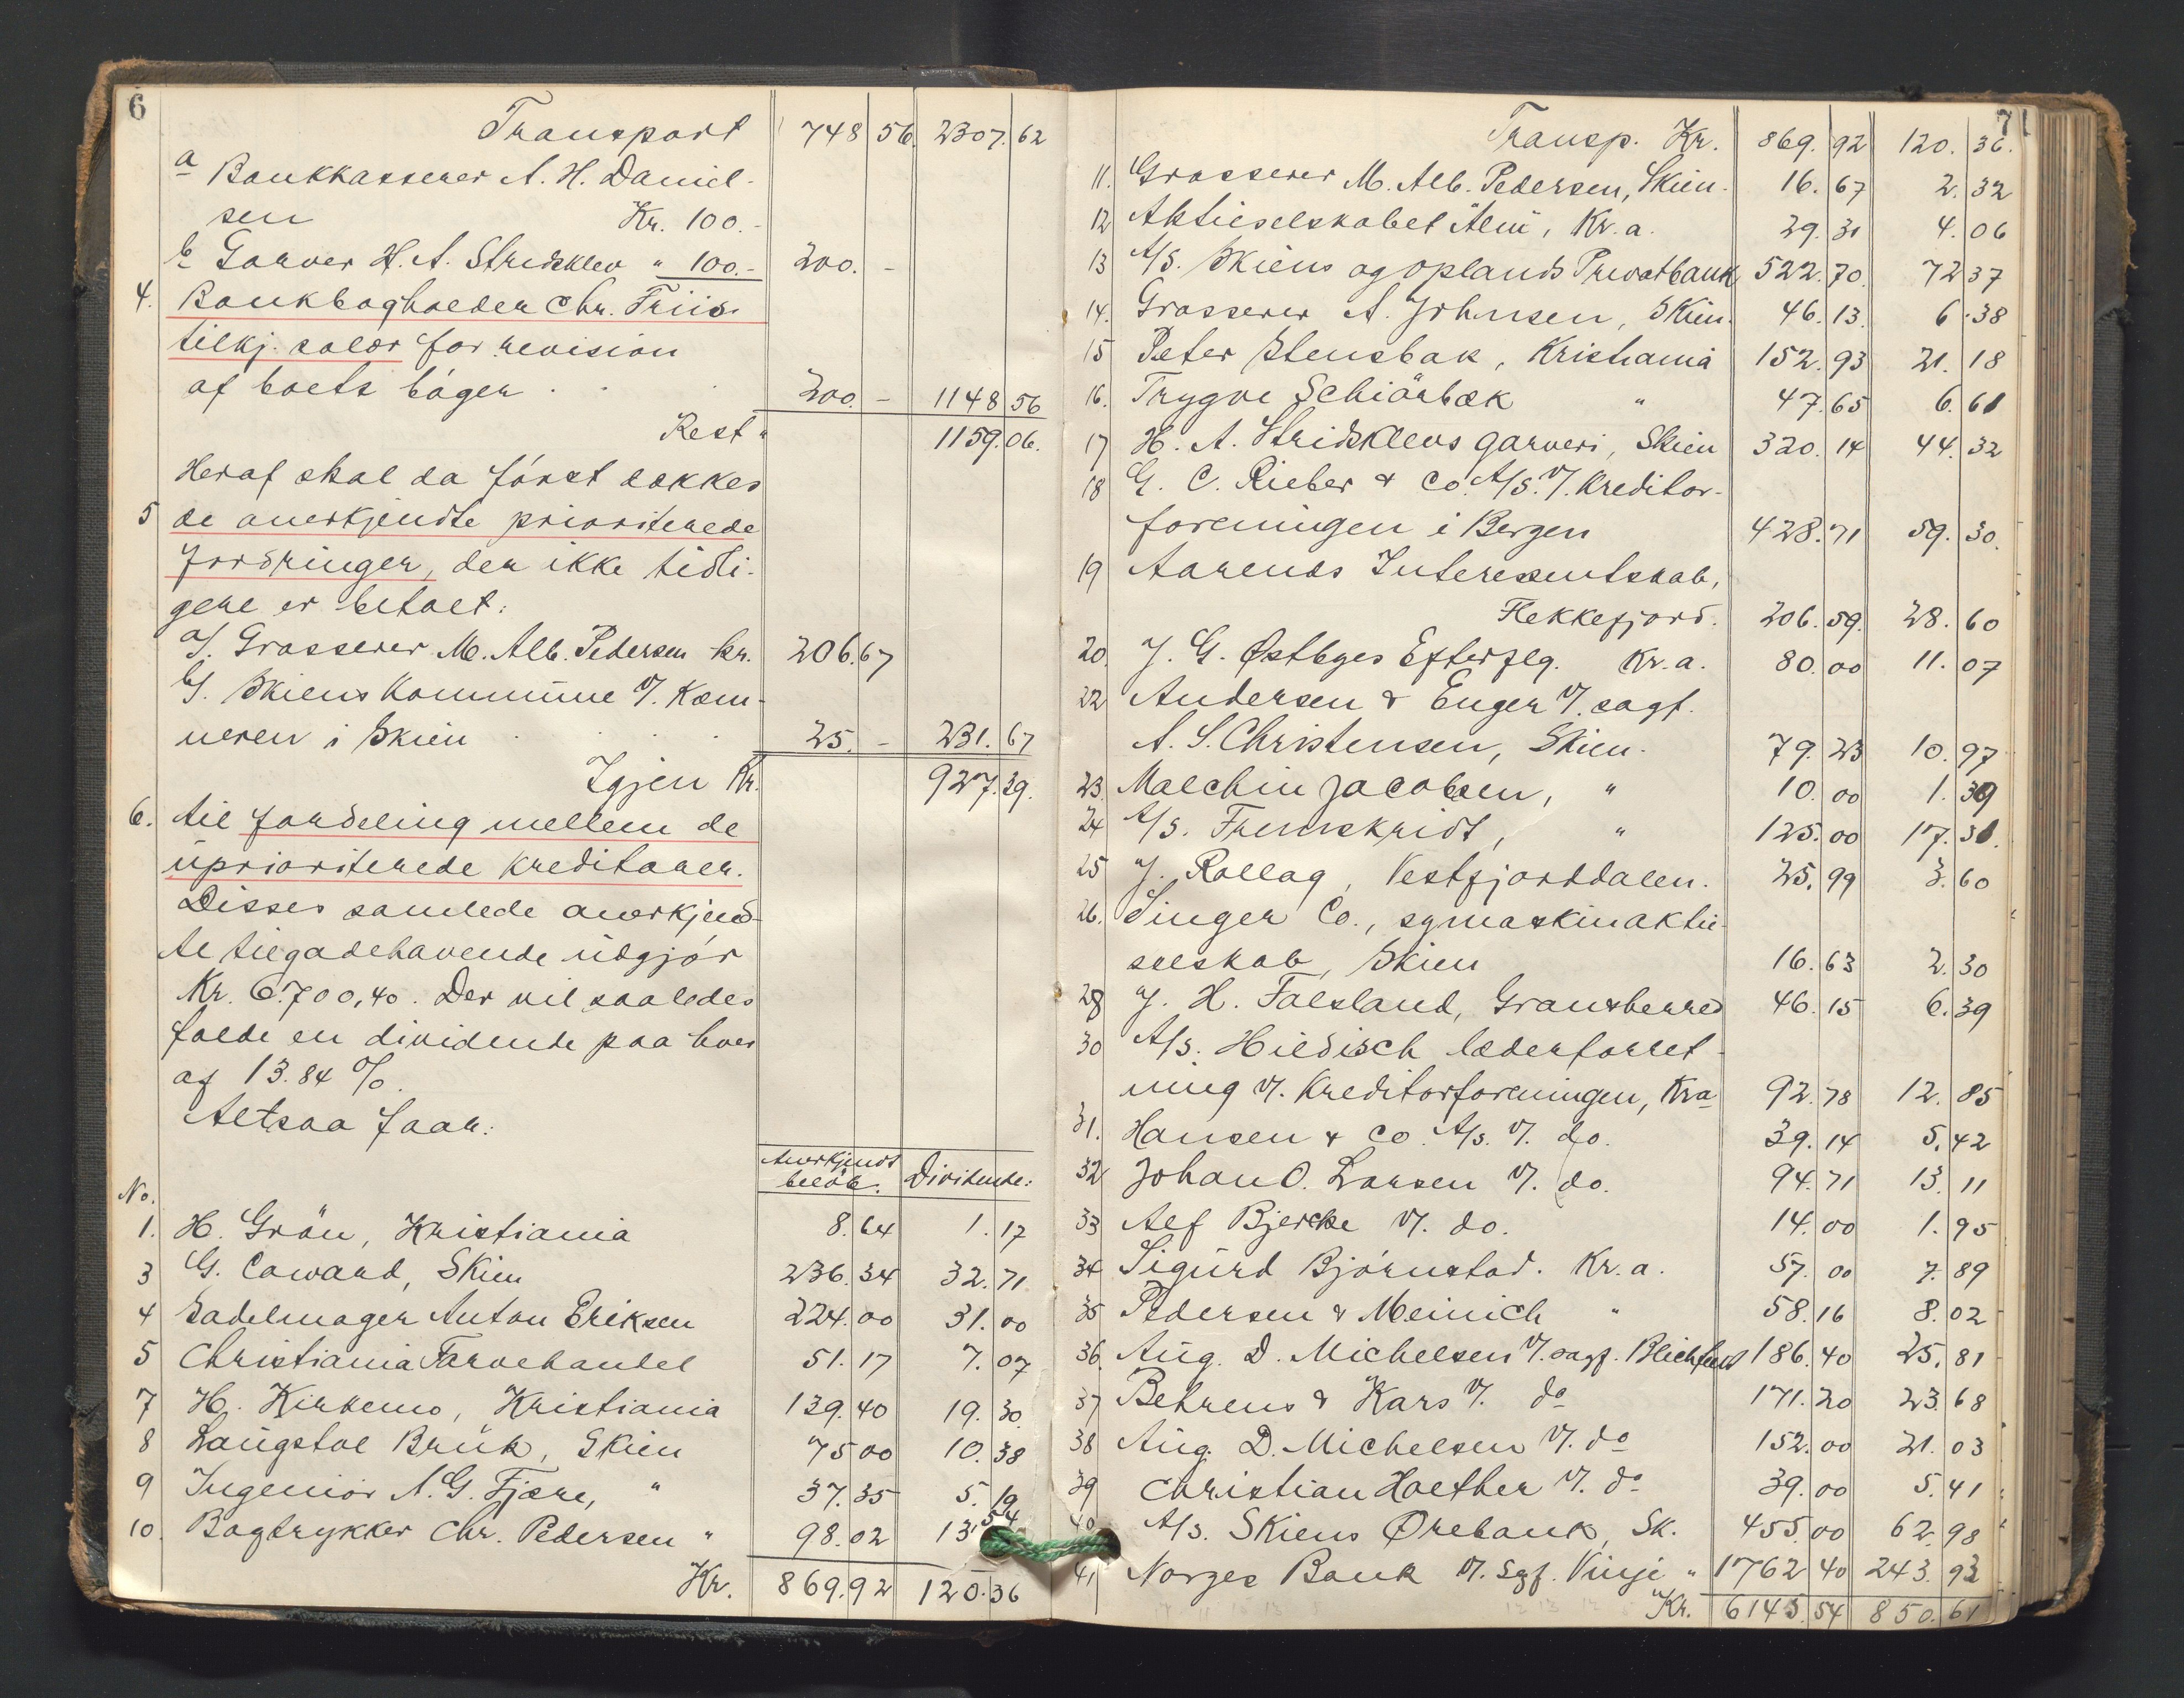 6
Transport 748 56. 2307. 62
a Bankkasserer A. H. Daniel-
sen Kr. 100.-
b Garver H. A. Stridsklev " 100.- 200. -
4. Bankbogholder Chr. Friis
tilkj. salær for revision
af boets bøger . . . 200. - 1148 56
Rest " 1159. 06.
Heraf skal da først dækkes
5 de anerkjendte prioriterede
fordringer, der ikke tidli-
gere er betalt:
a/. Grosserer M. Alb. Pedersen kr. 206. 67
b/. Skiens Kommune v/. Kæm-
neren i Skien . . . . 25. - 231. 67
Igjen Kr. 927. 39.
6. til fordeling mellem de
uprioriterede kreditorer.
Disses samlede anerkjend-
te tilgodehavende udgjør
Kr. 6.700,40. Der vil saaledes
falde en dividende paa hver
af 13.84 %.
Altsaa faar:
No. Anerkjendt beløb. Dividende:
1. H. Grön, Kristiania 8. 64 1. 17
3 G. Coward, Skien 236. 34 32. 71
4 Sadelmager Anton Eriksen 224. 00 31. 00
5 Christiania Farvehandel 51. 17 7. 07
7 H. Kirkemo, Kristiania 139. 40 19. 30.
8 Langstol Bruk, Skien 75 00 10. 38
9 Ingeniør A. G. Fjære, " 37. 35 5. 19
10. Bogtrykker Chr. Pedersen " 98. 02 13. 54
Kr. 869. 92 120. 36
7
Transp. Kr. 869. 92 120. 36.
11. Grosserer M. Alb. Pedersen, Skien. 16. 67 2. 32
12 Aktieselskabet Alm, Kr.a. 29. 31 4. 06
13 A/S. Skiens og oplands Privatbank 522. 70. 72 37
14. Grosserer A. Johnsen, Skien. 46. 13. 6. 38
15 Peter Stensbak, Kristiania 152. 93 21. 18
16. Trygve Schiørbæk " 47. 65 6. 61
17 H. A. Stridsklevs garveri, Skien 320. 14 44. 32
18 G. C. Rieber & Co. A/S. v/. Kreditor-
foreningen i Bergen 428. 71 59. 30.
19 Aarenes Interessentskab,
Flekkefjord. 206. 59. 28. 60
20. J. G. Østbyes Efterflg. Kr.a. 80. 00 11. 07
22 Andersen & Enger v/. sagf.
A. S. Christensen, Skien. 79. 23 10. 97
23. Malchin Jacobsen, " 10. 00 1. 39
24 A/S. Fremskridt, " 125. 00 17. 31.
25 J. Rollag, Vestfjorddalen. 25. 99 3. 60
26. Singer Co., symaskinaktie-
selskab, Skien 16. 63 2. 30
28 J. H. Folsland, Gransherred 46. 15 6. 39
30 A/S. Hildisch læderforret-
ning v/. Kreditorforeningen, Kra 92. 78 12. 85
31. Hansen & Co. A/S. v/. do. 39. 14 5. 42
32 Johan O. Larsen v/. do. 94. 71 13. 11
33 Alf Bjercke v/. do. 14. 00 1. 95
34 Sigurd Bjørnstad. Kr.a. 57. 00 7. 89
35 Pedersen & Meinich " 58. 16 8. 02
36. Aug. D. Michelsen v/. sagf. Blichfeldt 186. 40 25. 81
37 Behrens & Kars v/. do 171. 20 23. 68
38 Aug. D. Michelsen v/. do 152. 00 21. 03
39 Christian Holther v/. do 39. 00 5. 41
40 A/S. Skiens Ørebank, Sk. 455. 00 62. 98
41 Norges Bank v/. Sgf. Vinje " 1762 40 243. 93
Kr. 6143. 54 850. 61